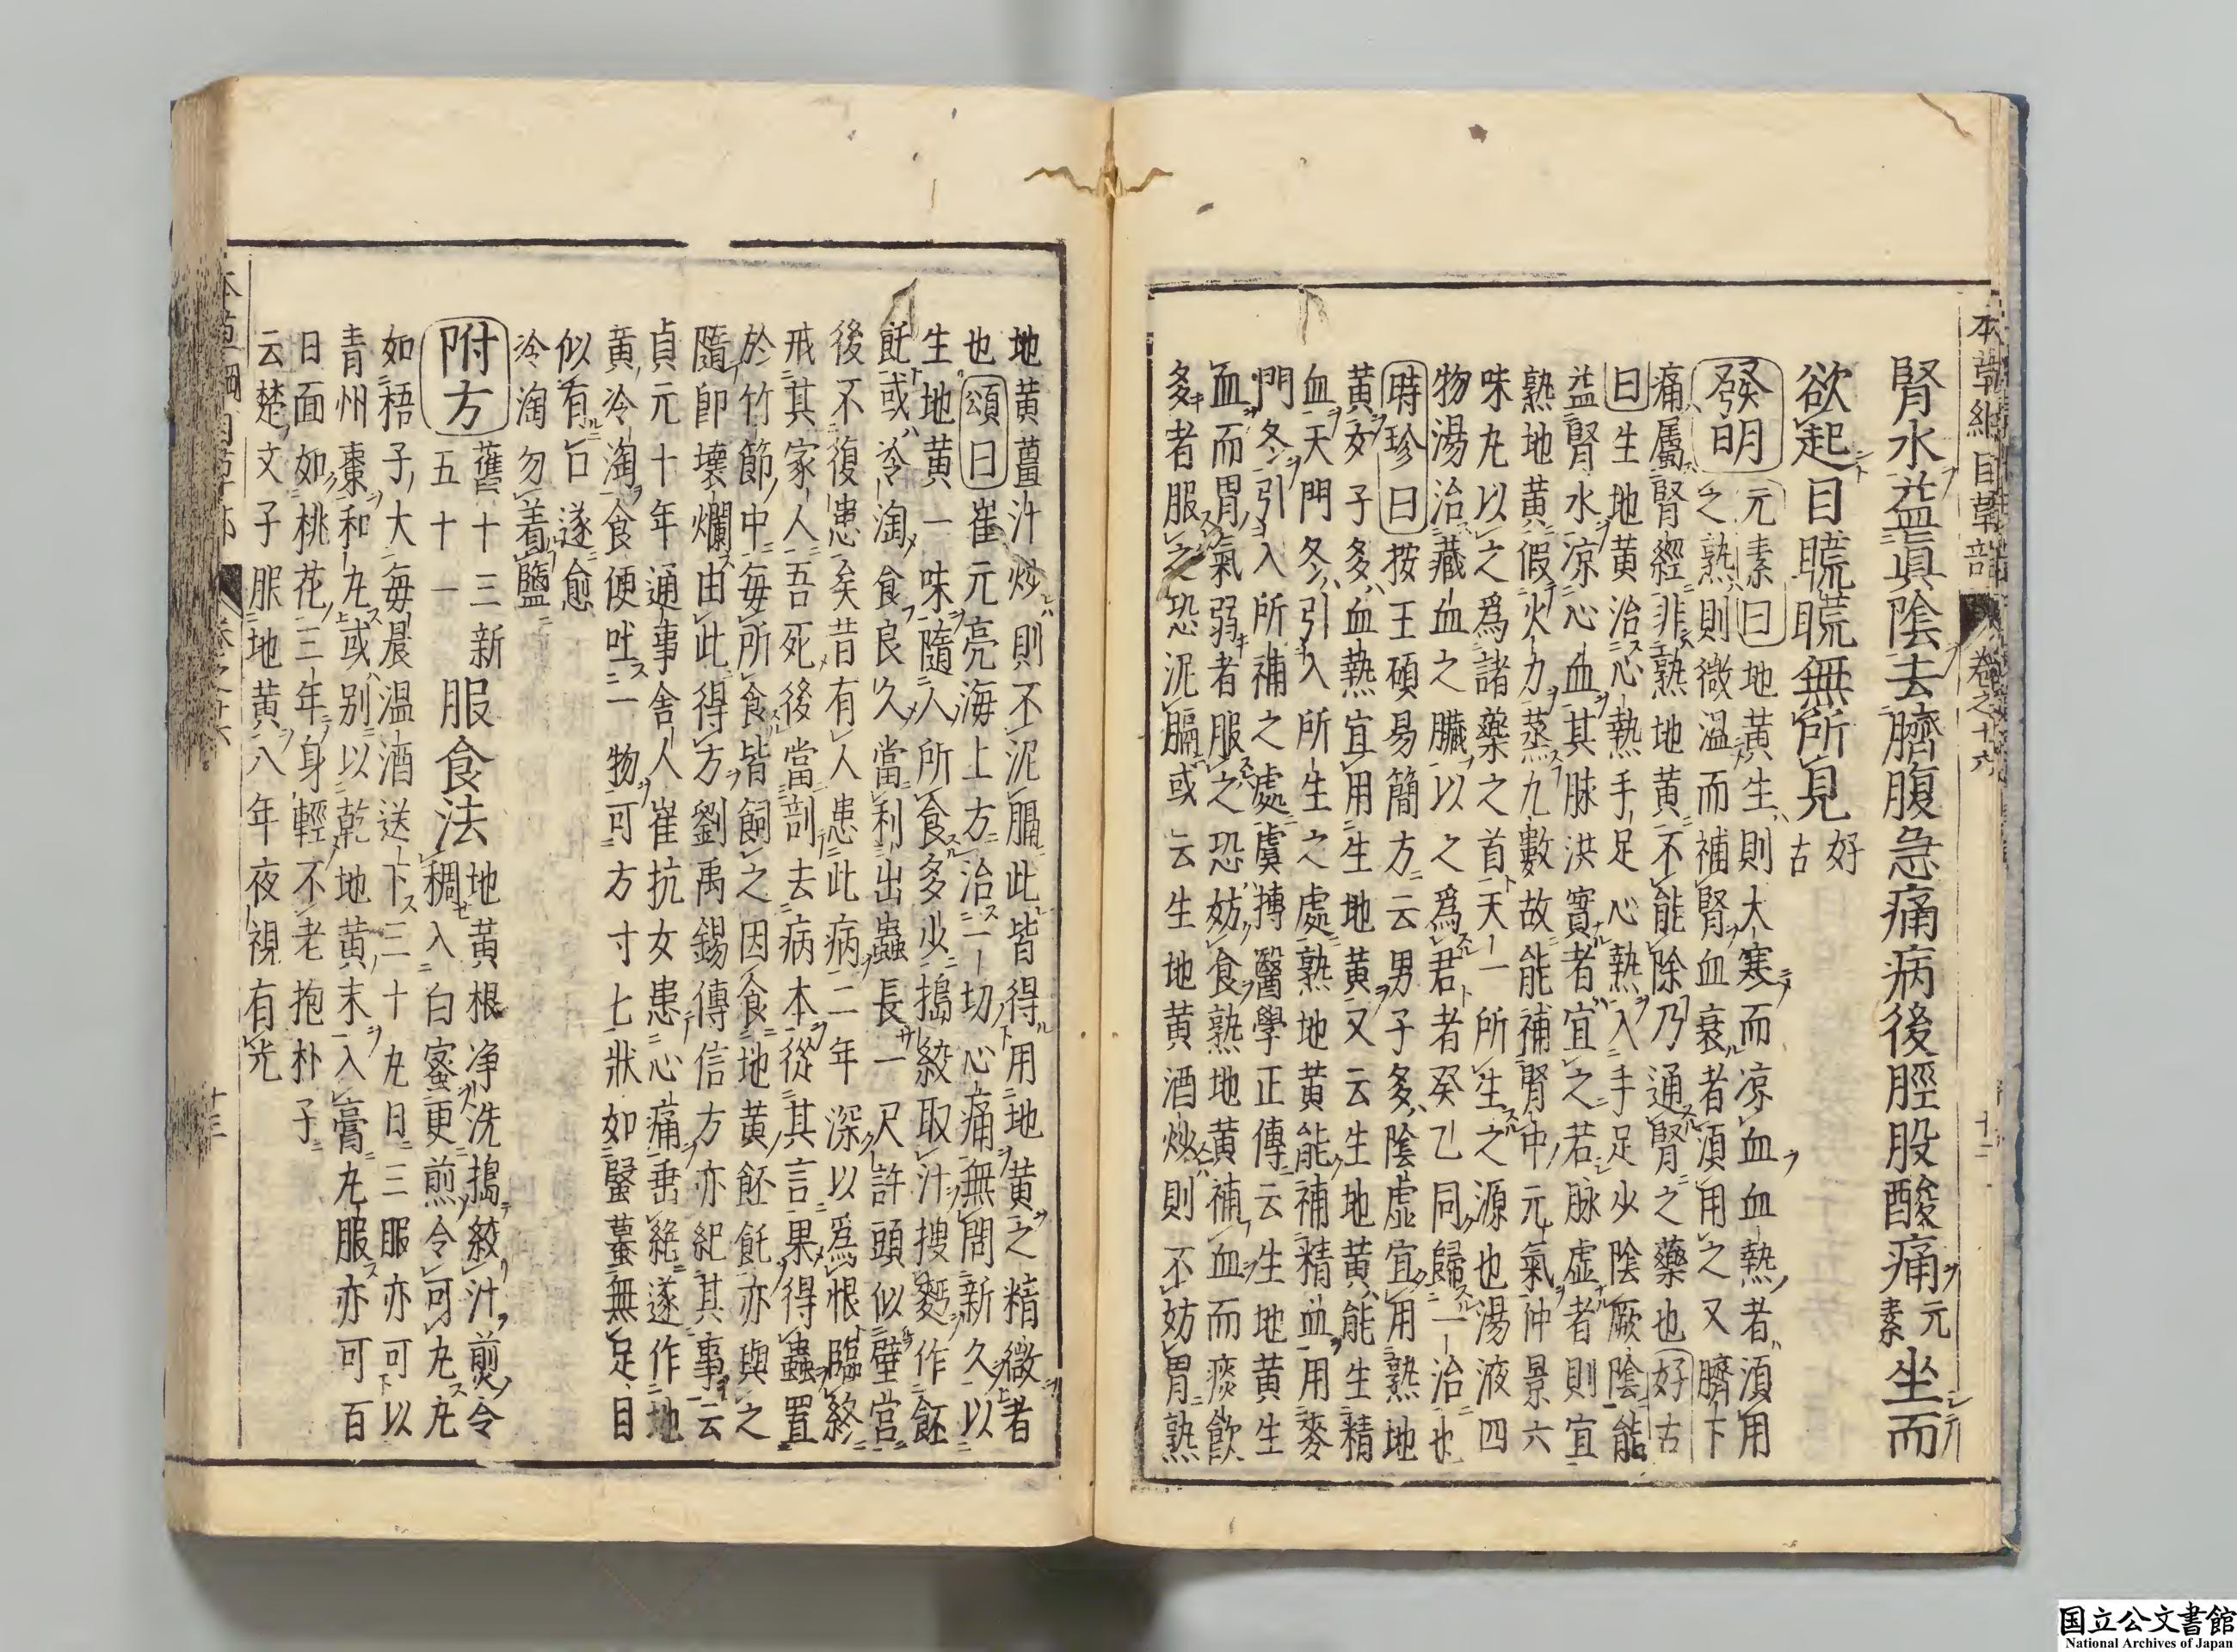 本草綱目草部 卷之十六 十二
腎水益眞陰去臍腹急痛病後脛股酸痛元素坐而
欲起目䀮䀮無所見好古
發明 元素曰地黃生則大寒而凉血血熱者須用
之熟則微溫而補腎血衰者須用之又臍下
痛屬腎經非熟地黃不能除乃通腎之藥也好古
曰生地黃治心熱手足心熱入手足少陰厥陰能
益腎水凉心血其脉洪實者宜之若脉虛者則宜
熟地黃假火力蒸九數故能補腎中元氣仲景六
味丸以之爲諸藥之首天一所生之源也湯液四
物湯治藏血之臟以之爲君者癸乙同歸一治也
時珍曰按王碩易簡方云男子多陰虛宜用熟地
黃女子多血熱宜用生地黃又云生地黃能生精
血天門冬引入所生之處熟地黃能補精血用麥
門冬引入所補之處虞摶醫學正傳云生地黃生
血而胃氣弱者服之恐妨食熟地黃補血而痰飲
多者服之恐泥膈或云生地黃酒炒則不妨胃熟
地黃薑汁炒則不泥膈此皆得用地黃之精微者
也頌曰崔元亮海上方治一切心痛無問新久以
生地黃一味隨人所食多少搗絞取汁搜麪作飥
飥或冷淘食良久當利出蟲長一尺許頭似壁宮
後不復患矣昔有人患此病二年深以爲恨臨終
戒其家人吾死後當剖去病本從其言果得蟲置
於竹節中每所食皆飼之因食地黃飥飥亦與之
隨即壞爛由此得方劉禹錫傳信方亦紀其事云
貞元十年通事舍人崔抗女患心痛垂絶遂作地
黃冷淘食便吐一物可方寸匕狀如蝦蟇無足目
似有口遂愈
冷淘勿着鹽
附方 舊十三新五十一 服食法 地黃根净洗搗絞汁煎令
稠入白蜜更煎令可丸丸
如梧子大每晨溫酒送下三十丸日三服亦可以
青州棗和丸或别以乾地黃末入膏丸服亦可百
日面如桃花三年身輕不老抱朴子
云楚文子服地黃八年夜視有光
本草綱目草部 卷之十六 十三
国立公文書館
National Archives of Japan